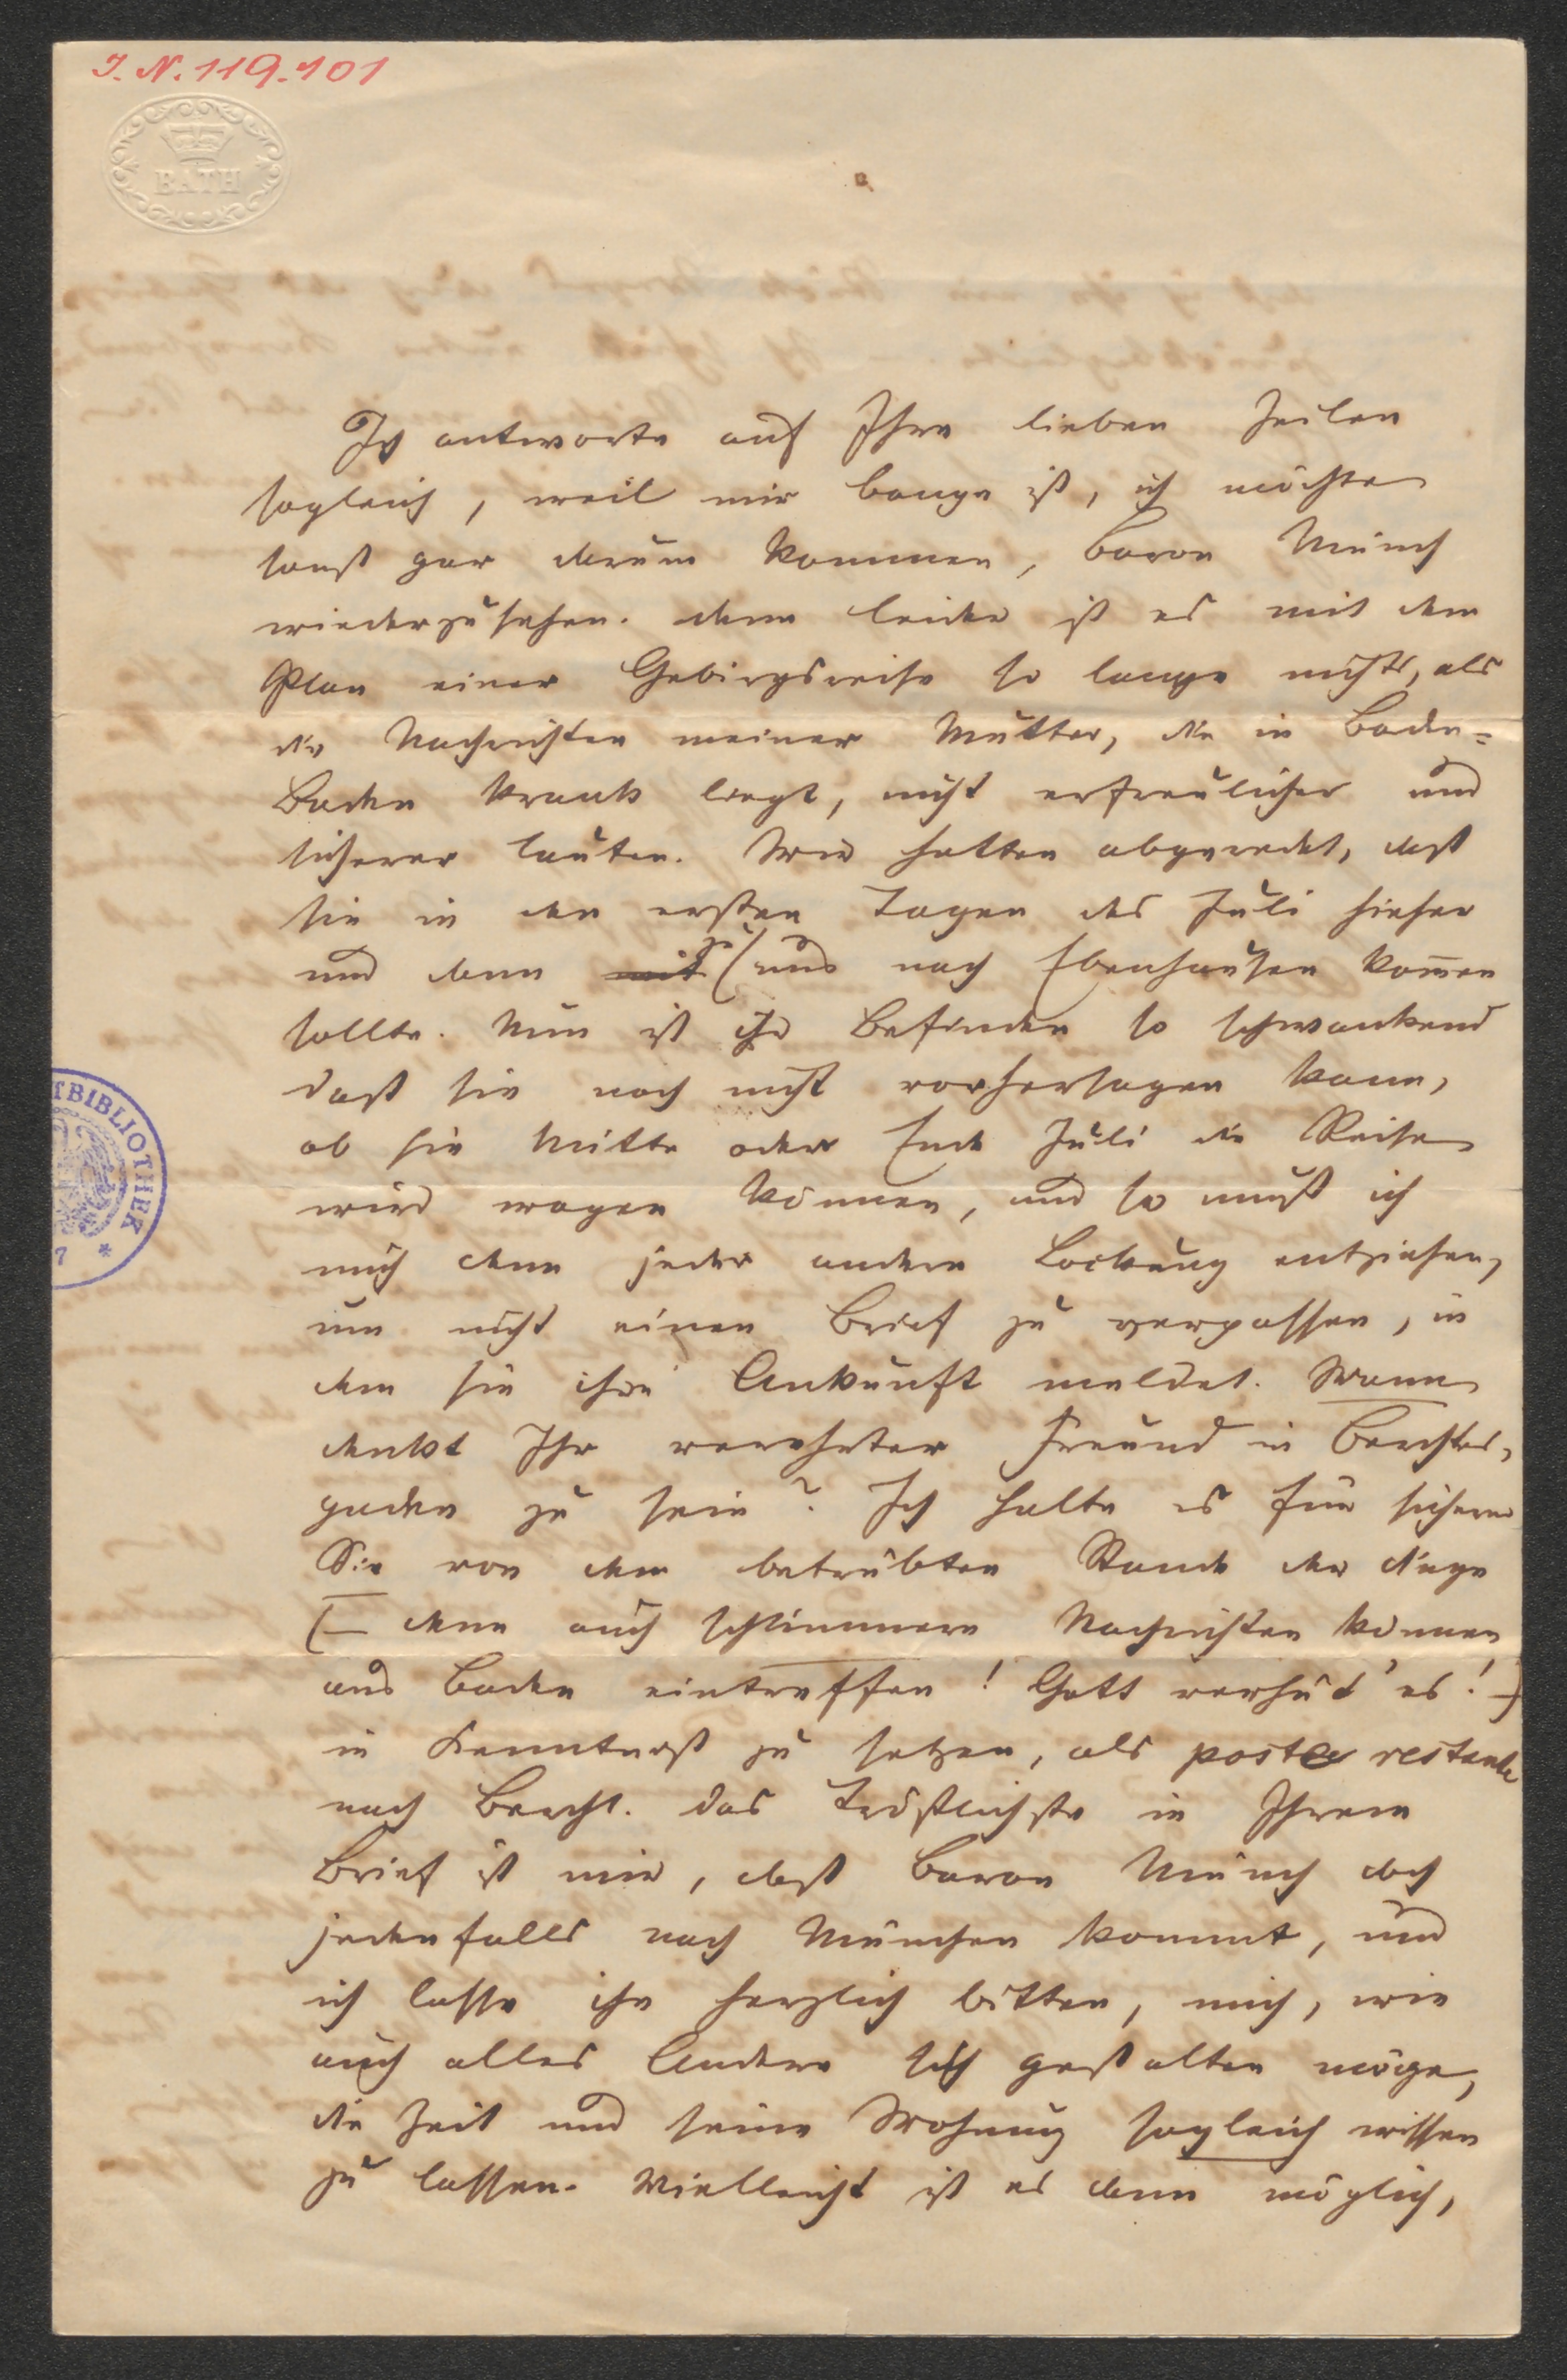 I. N. 119.101
BATH
Ich antworte auf Ihre lieben Zeilen
sogleich, weil mir bange ist, ich möchte
sonst gar darum kommen, Baron Münch
wiederzusehen. denn leider ist es mit dem
Plan einer Gebirgsreise so lange nichts, als
die Nachrichten meiner Mutter, die in Baden=
Baden krank liegt, nicht erfreulicher und
sicherer lauten. Wir hatten abgeredet, daß
sie in den ersten Tagen des Juli hieher
und dann mit zu uns nach Ebenhausen kom̅en
sollte. Nun ist ihr Befinden so schwankend
daß sie noch nicht vorhersagen kann,
ob sie Mitte oder Ende Juli die Reise
wird wagen können, und so muß ich
mich denn jeder andern Lockung entziehen,
um nicht einen Brief zu verpassen, in
dem sie ihre Ankunft meldet. Wann
denkt Ihr verehrter Freund in Berchtes-
gaden zu sein? Ich halte es für sicherer
Sie von dem betrübten Stand der Dinge
(– denn auch schlimmere Nachrichten können
aus Baden eintreffen! Gott verhüt' es! –)
in Kenntniß zu setzen, als poste restante
nach Bercht. Das Tröstlichste in Ihrem
Brief ist mir, daß Baron Münch doch
jedenfalls nach München kommt, und
ich lasse ihn herzlich bitten, mich, wie
auch alles Andere sich gestalten möge,
die Zeit und seine Wohnung sogleich wissen
zu lassen. Vielleicht ist es dann möglich,
TBIBLIOTHEK
7 *